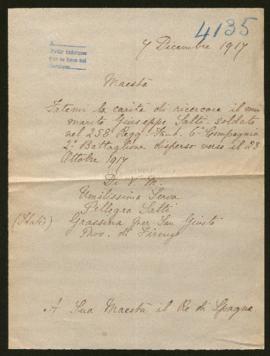 4135
7 Dicembre 1917
Maestà
Fatemi la carità di ricercare il mio
marito Giuseppe Salti, soldato
nel 258 Regg. Fant. 6ª Compagnia
2º Battaglione disperso verso il 23
Ottobre 1917
Di V. M.
Umilissima Serva
Pellegra Salti
(Italia) Grassina per San Giusto
Prov. di Firenze
A Sua Maestà il Re di Spagna